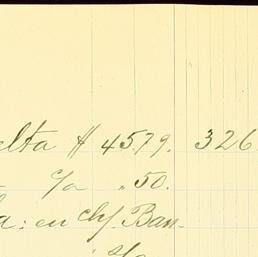 elta # 45.79. 326
c/a .50.
a: en chf Ban-